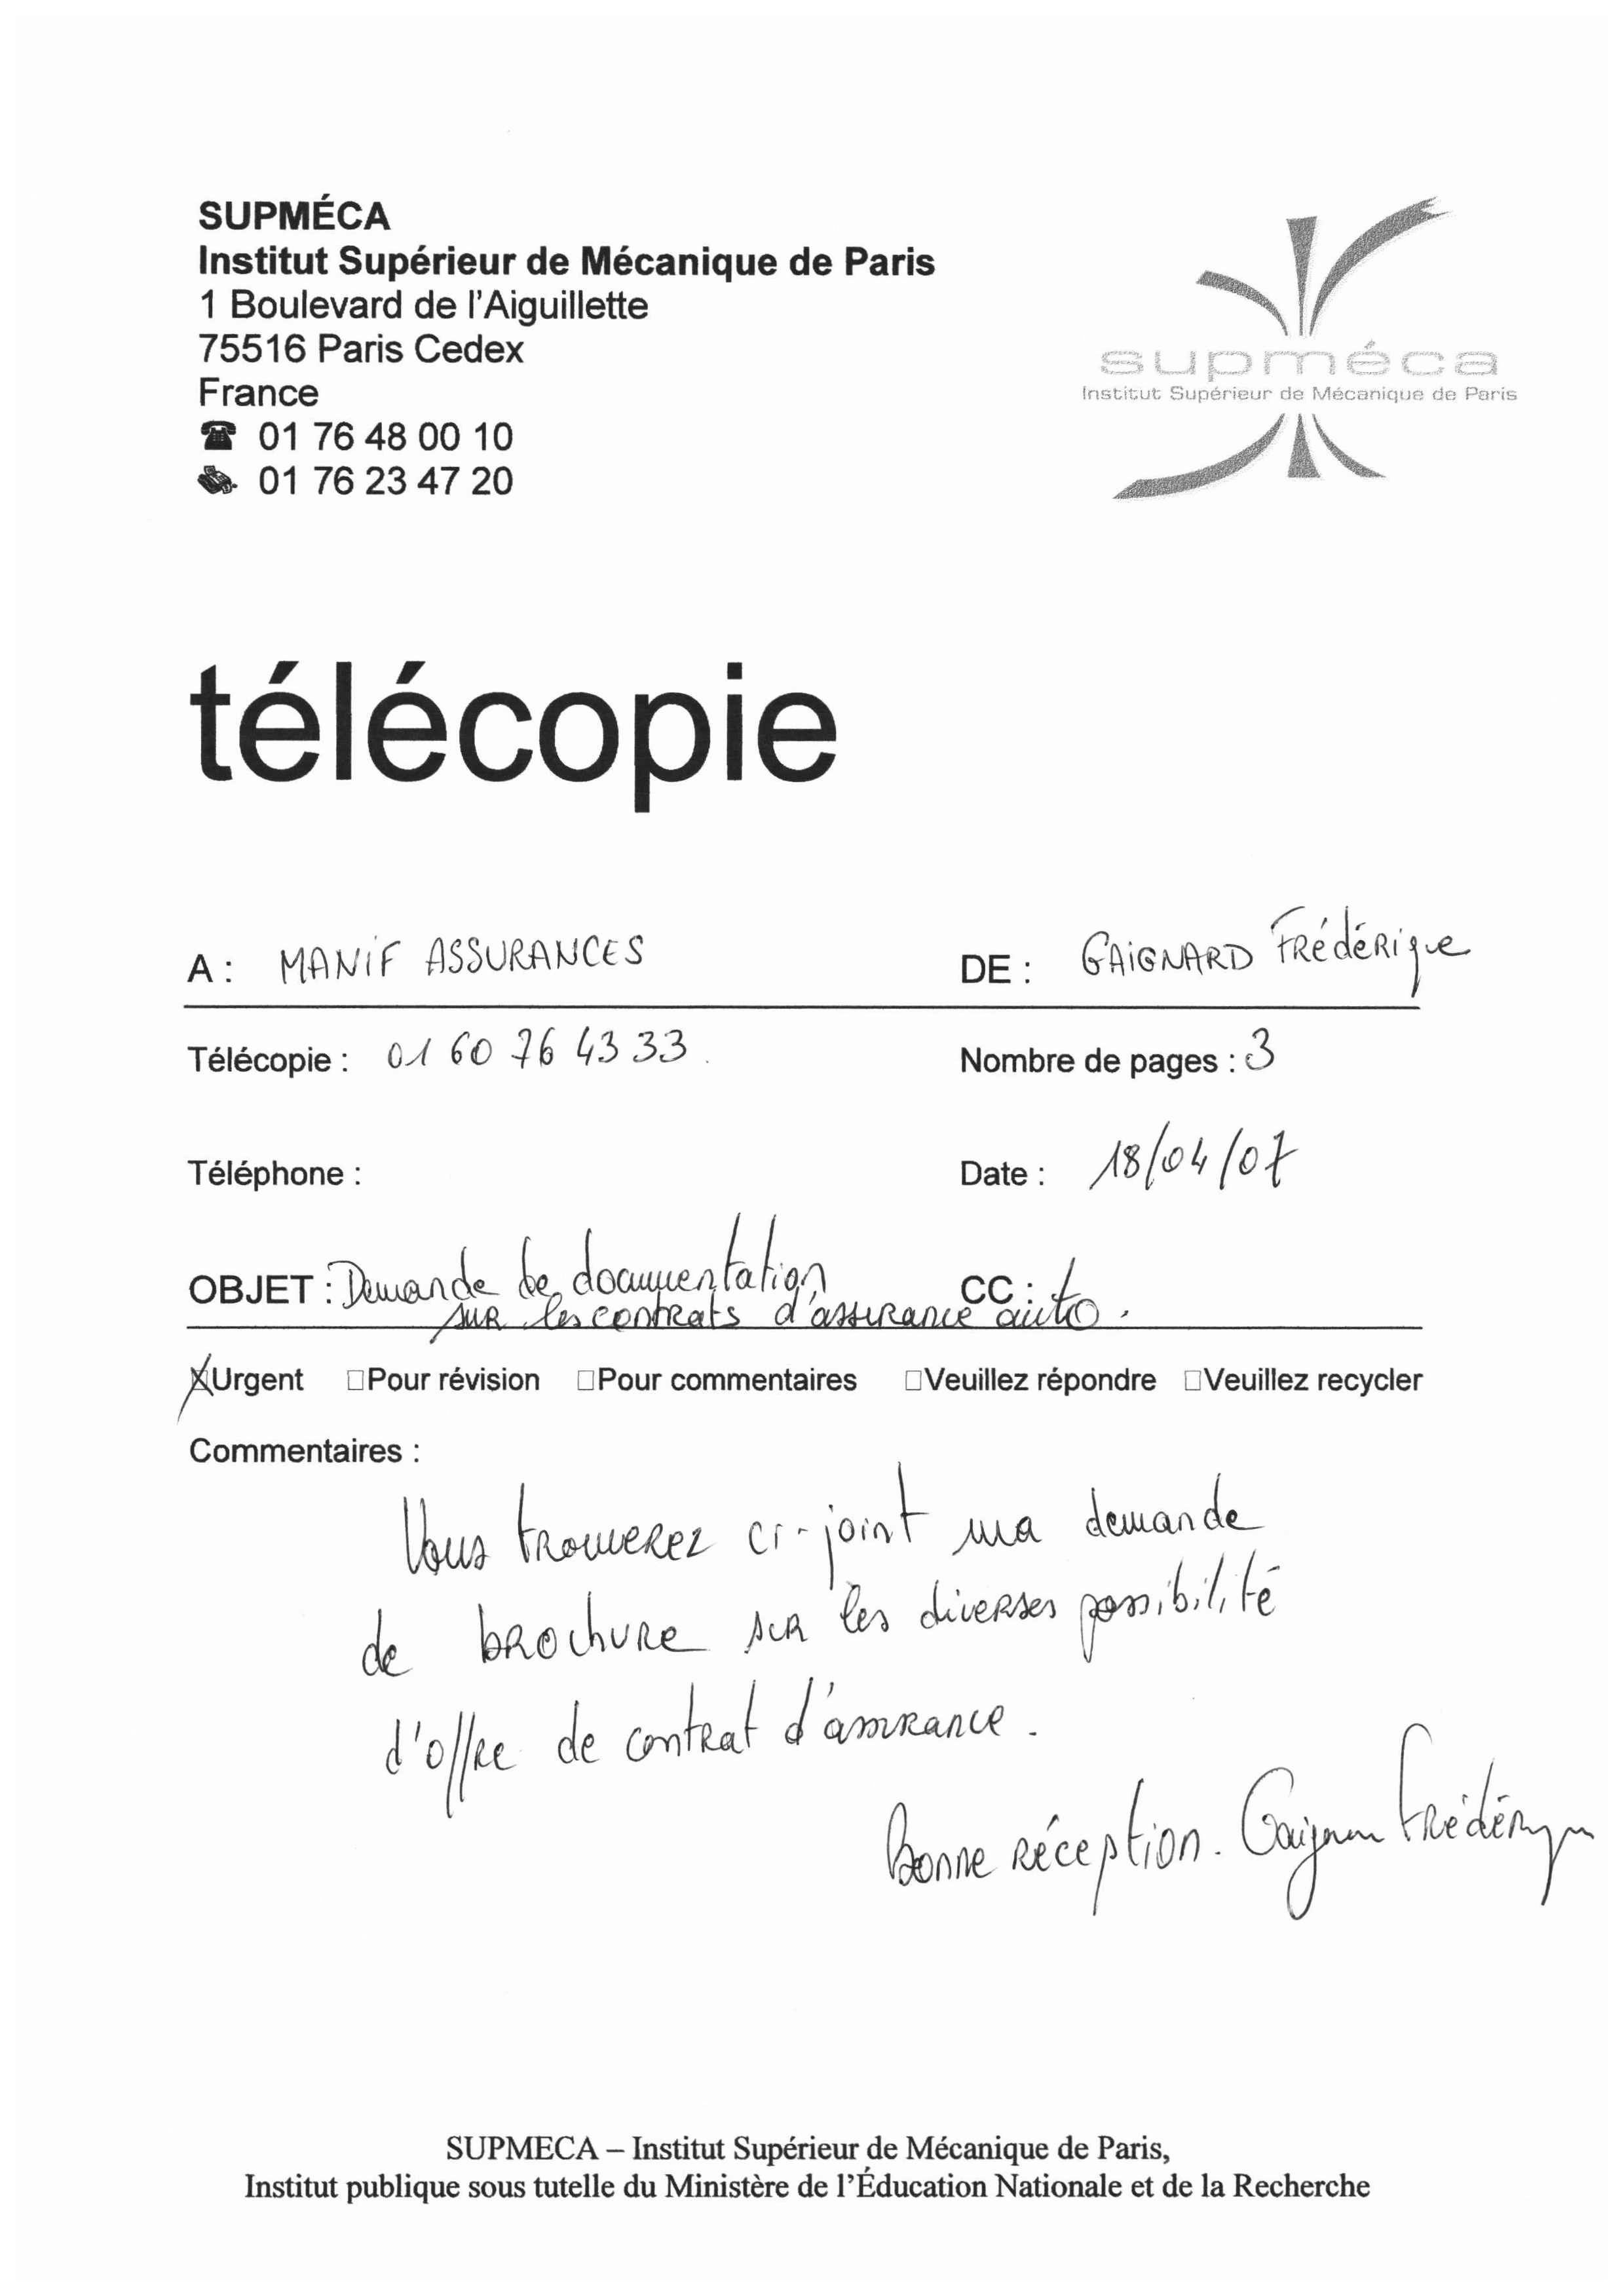 SUPMÉCA
Institut Supérieur de Mécanique de Paris
1 Boulevard de l'Aiguillette
75516 Paris Cedex
France
01 76 48 00 10
01 76 23 47 20
supméca
Institut Supérieur de Mécanique de Paris
télécopie
A : MANIF ASSURANCES DE : GAIGNARD FRédéRique
Télécopie : 01 60 76 43 33. Nombre de pages : 3
Téléphone : Date : 18/04/07
OBJET : Demande de documentation CC :
sur les contrats d'assurance auto.
Urgent Pour révision Pour commentaires Veuillez répondre Veuillez recycler
Commentaires :
Vous trouverez ci-joint ma demande
de brochure sur les diverses possibilité
d'offre de contrat d'assurance.
Bonne réception. Gaignard Frédérique
SUPMECA – Institut Supérieur de Mécanique de Paris,
Institut publique sous tutelle du Ministère de l'Éducation Nationale et de la Recherche